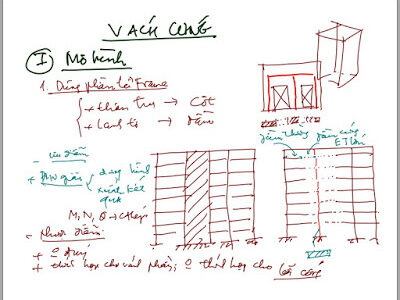 VÁCH CỨNG
I Mô hình
1. Dùng phần tử Frame
+ thân trụ → Cột
+ Lanh tô → dầm
dầm thường
dầm cứng
EJ lớn
- ưu điểm
+ đơn giản
dựng hình
xuất kết quả
M, N, Q → cthép
- Nhược điểm:
+
+ thích hợp cho vách phẳng; 0 thích hợp cho lõi cứng